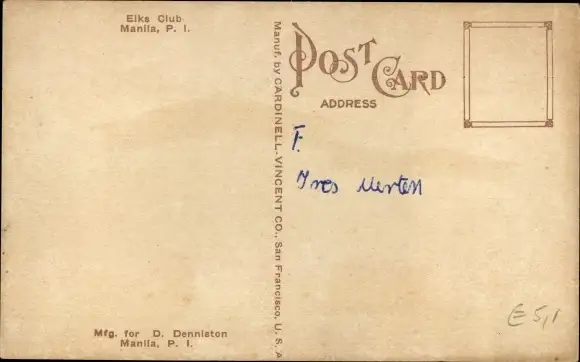 Elks Club
Manila, P. I.
Mfg. for D. Denniston
Manila, P. I.
Manuf. by CARDINELL-VINCENT CO., San Francisco, U. S. A
POST CARD
ADDRESS
F.
Yves Merten
E 5,1